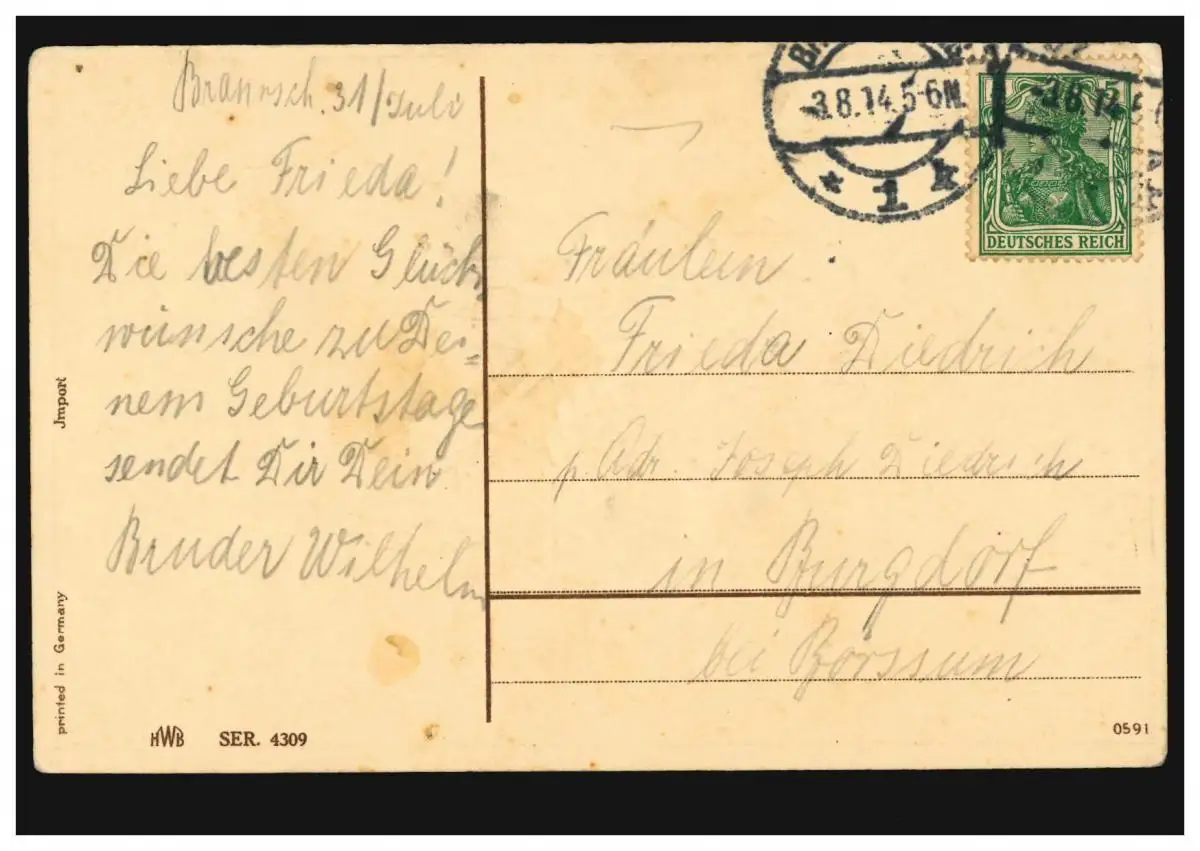 Braunsch. 31/Juli
Liebe Frieda!
Die besten Glück
wünsche zu Dei=
nem Geburtstage
sendet Dir Dein
Bruder Wilhelm
3.8.14.5-6N.
* 1 k
5
DEUTSCHES REICH
Fräulein
Frieda Diedrich
p. Adr. Joseph Diedrich
in Burgdorf
bei Börssum
Jmport
printed in Germany
HWB SER. 4309
0591